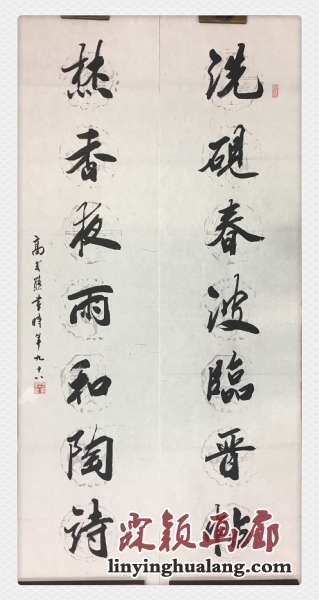 洗硯春波臨晉帖
焚香夜雨和陶詩
高式熊書時年九十八
霖颖画廊
linyinghualang.com